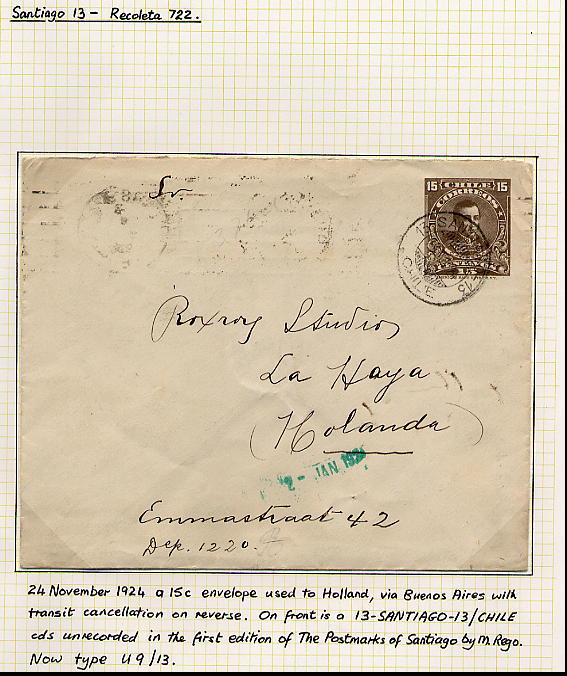 Santiago 13 - Recoleta 722.
Sr
15 CHILE 15
CORREOS
15
CHILE
Roxroy Studios
La Haya
(Holanda)
2 - JAN 192
Emmastraat 42
Dep. 1220.
24 November 1924 a 15c envelope used to Holland, via Buenos Aires with
transit cancellation on reverse. On front is a 13-SANTIAGO-13/CHILE
cds unrecorded in the first edition of The Postmarks of Santiago by M. Rego.
Now type U9/13.